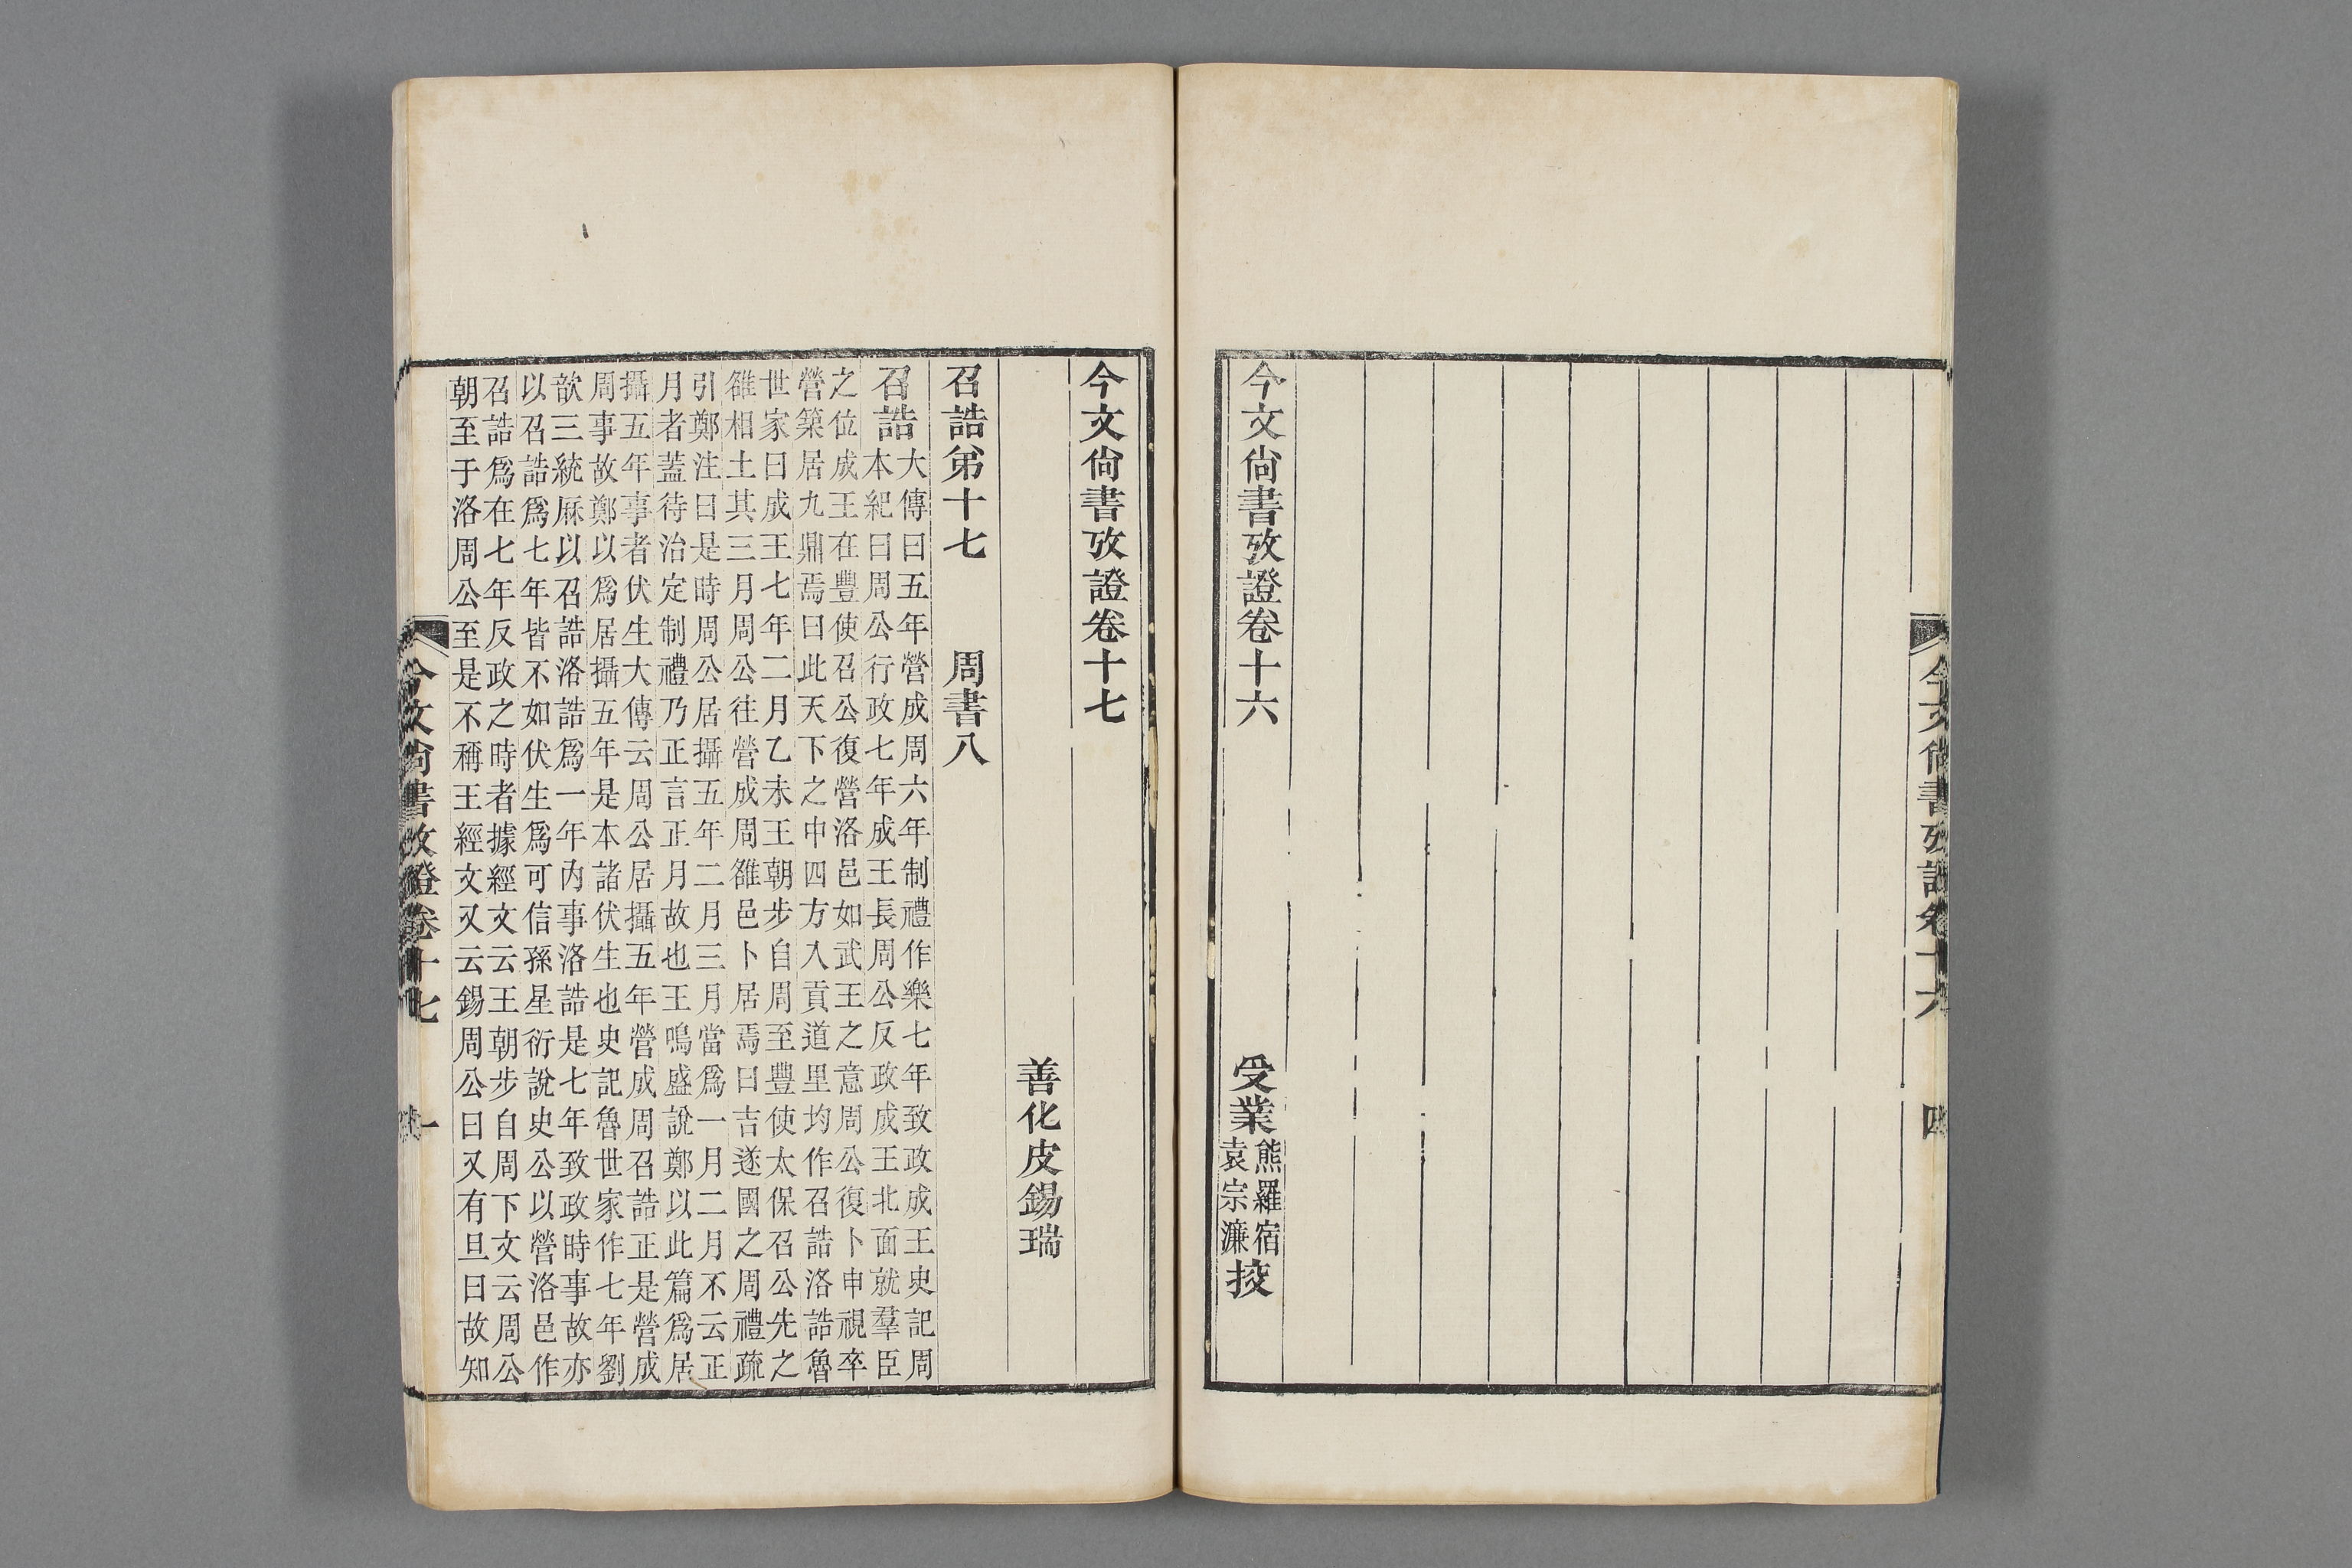 今文尚書攷證卷十六 四
今文尚書攷證卷十六 受業熊羅宿袁宗濂挍
今文尚書攷證卷十七
善化皮錫瑞
召誥弟十七 周書八
召誥
大傳曰五年營成周六年制禮作樂七年致政成王史記周
本紀曰周公行政七年成王長周公反政成王北面就羣臣
之位成王在豐使召公復營洛邑如武王之意周公復卜申視卒
營築居九鼎焉曰此天下之中四方入貢道里均作召誥洛誥魯
世家曰成王七年二月乙未王朝步自周至豐使太保召公先之
雒相土其三月周公往營成周雒邑卜居焉曰吉遂國之周禮疏
引鄭注曰是時周公居攝五年二月三月當爲一月二月不云正
月者蓋待治定制禮乃正言正月故也王鳴盛說鄭以此篇爲居
攝五年事者伏生大傳云周公居攝五年營成周召誥正是營成
周事故鄭以爲居攝五年是本諸伏生也史記魯世家作七年劉
歆三統厤以召誥洛誥爲一年内事洛誥是七年致政時事故亦
以召誥爲七年皆不如伏生爲可信孫星衍說史公以營洛邑作
召誥爲在七年反政之時者據經文云王朝步自周下文云周公
朝至于洛周公至是不稱王經文又云錫周公曰又有旦曰故知
今文尚書攷證卷十七 一